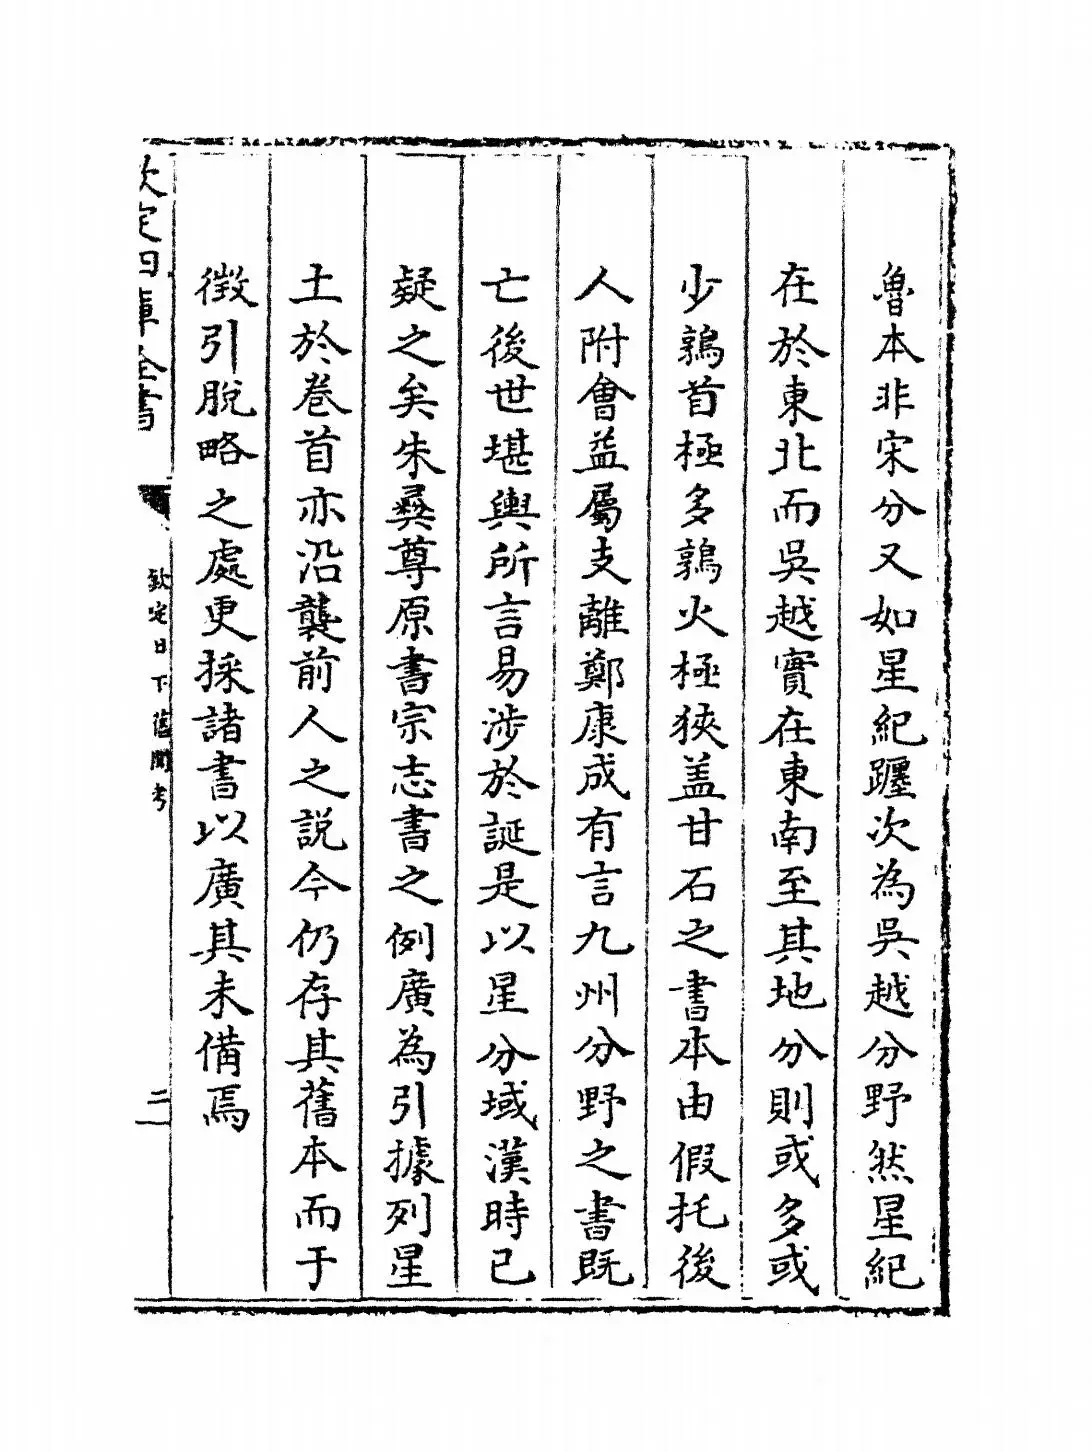 魯本非宋分又如星紀躔次為吳越分野然星紀
在於東北而吳越實在東南至其地分則或多或
少鶉首極多鶉火極狹盖甘石之書本由假托後
人附會益屬支離鄭康成有言九州分野之書既
亡後世堪輿所言易涉於誕是以星分域漢時已
疑之矣朱彛尊原書宗志書之例廣為引據列星
土於卷首亦沿襲前人之説今仍存其舊本而于
徴引脫略之處更採諸書以廣其未備焉
欽定四庫全書
欽定日下舊聞考
二